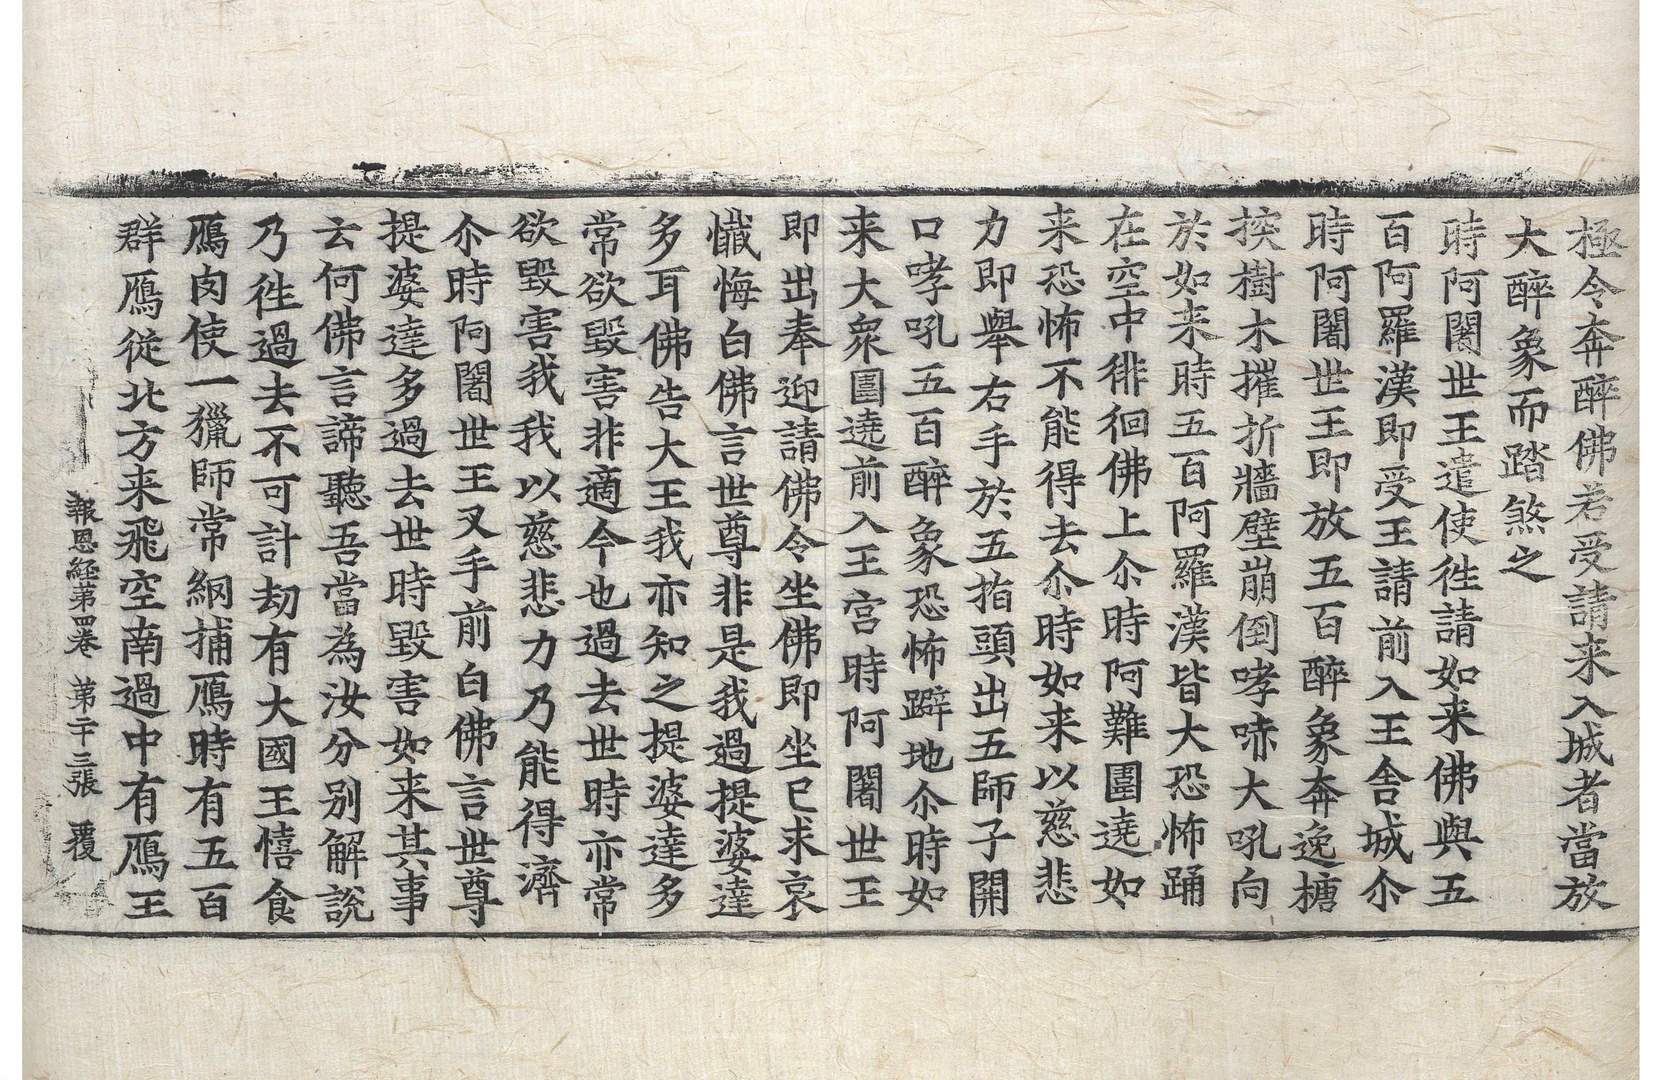 極令奔醉佛若受請来入城者當放
大醉象而踏煞之
時阿闍世王遣使徃請如来佛與五
百阿羅漢即受王請前入王舍城尒
時阿闍世王即放五百醉象奔逸𢵧
揬樹木摧折牆壁崩倒哮㖀大吼向
於如来時五百阿羅漢皆大恐怖踊
在空中徘徊佛上尒時阿難圍遶如
来恐怖不能得去尒時如来以慈悲
力即舉右手於五指頭出五師子開
口哮吼五百醉象恐怖躃地尒時如
来大衆圍遶前入王宫時阿闍世王
即出奉迎請佛令坐佛即坐已求哀
懺悔白佛言世尊非是我過提婆達
多耳佛告大王我亦知之提婆達多
常欲毀害非適今也過去世時亦常
欲毀害我我以慈悲力乃能得濟
尒時阿闍世王叉手前白佛言世尊
提婆達多過去世時毀害如来其事
云何佛言諦聽吾當為汝分別解說
乃徃過去不可計劫有大國王憘食
鴈肉使一獵師常網捕鴈時有五百
群鴈從北方来飛空南過中有鴈王
報恩経第四卷 第二十三張 覆